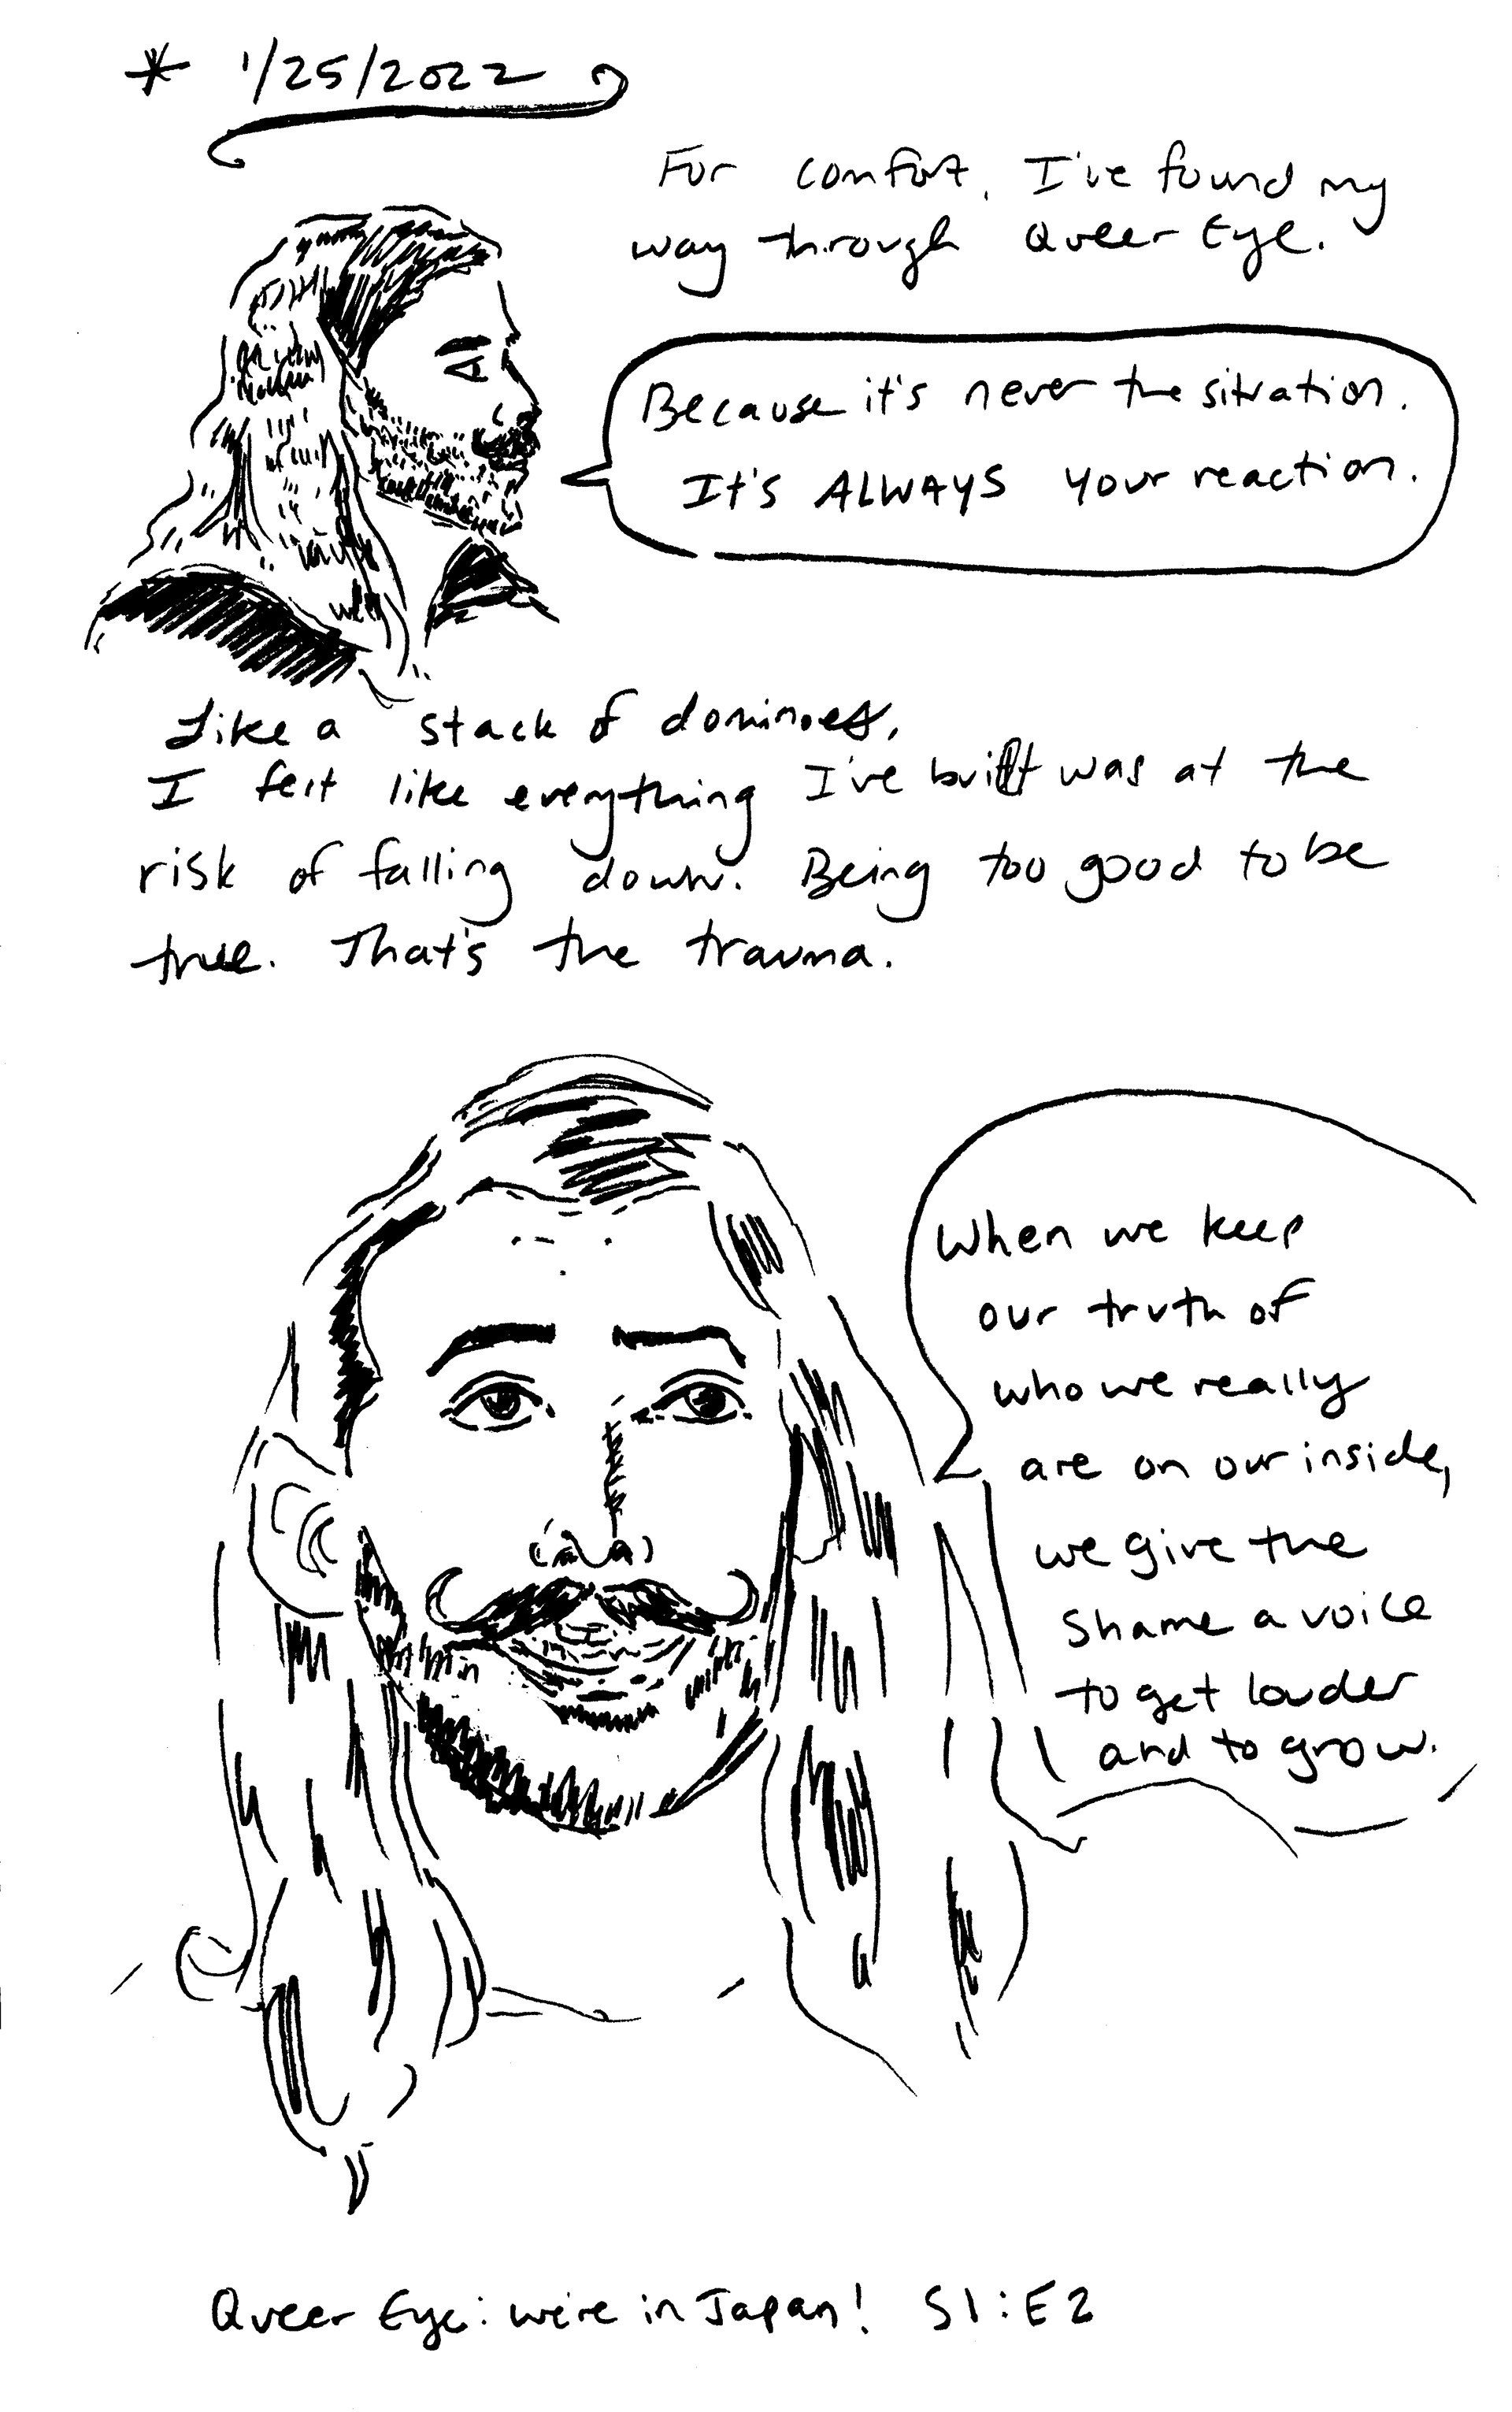 * 1/25/2022
For comfort, I've found my
way through Queer Eye.
Because it's never the situation.
It's ALWAYS your reaction.
Like a stack of dominoes,
I felt like everything I've built was at the
risk of falling down. Being too good to be
true. That's the trauma.
When we keep
our truth of
who we really
are on our inside,
we give the
shame a voice
to get louder
and to grow.
Queer Eye: we're in Japan! S1:E2